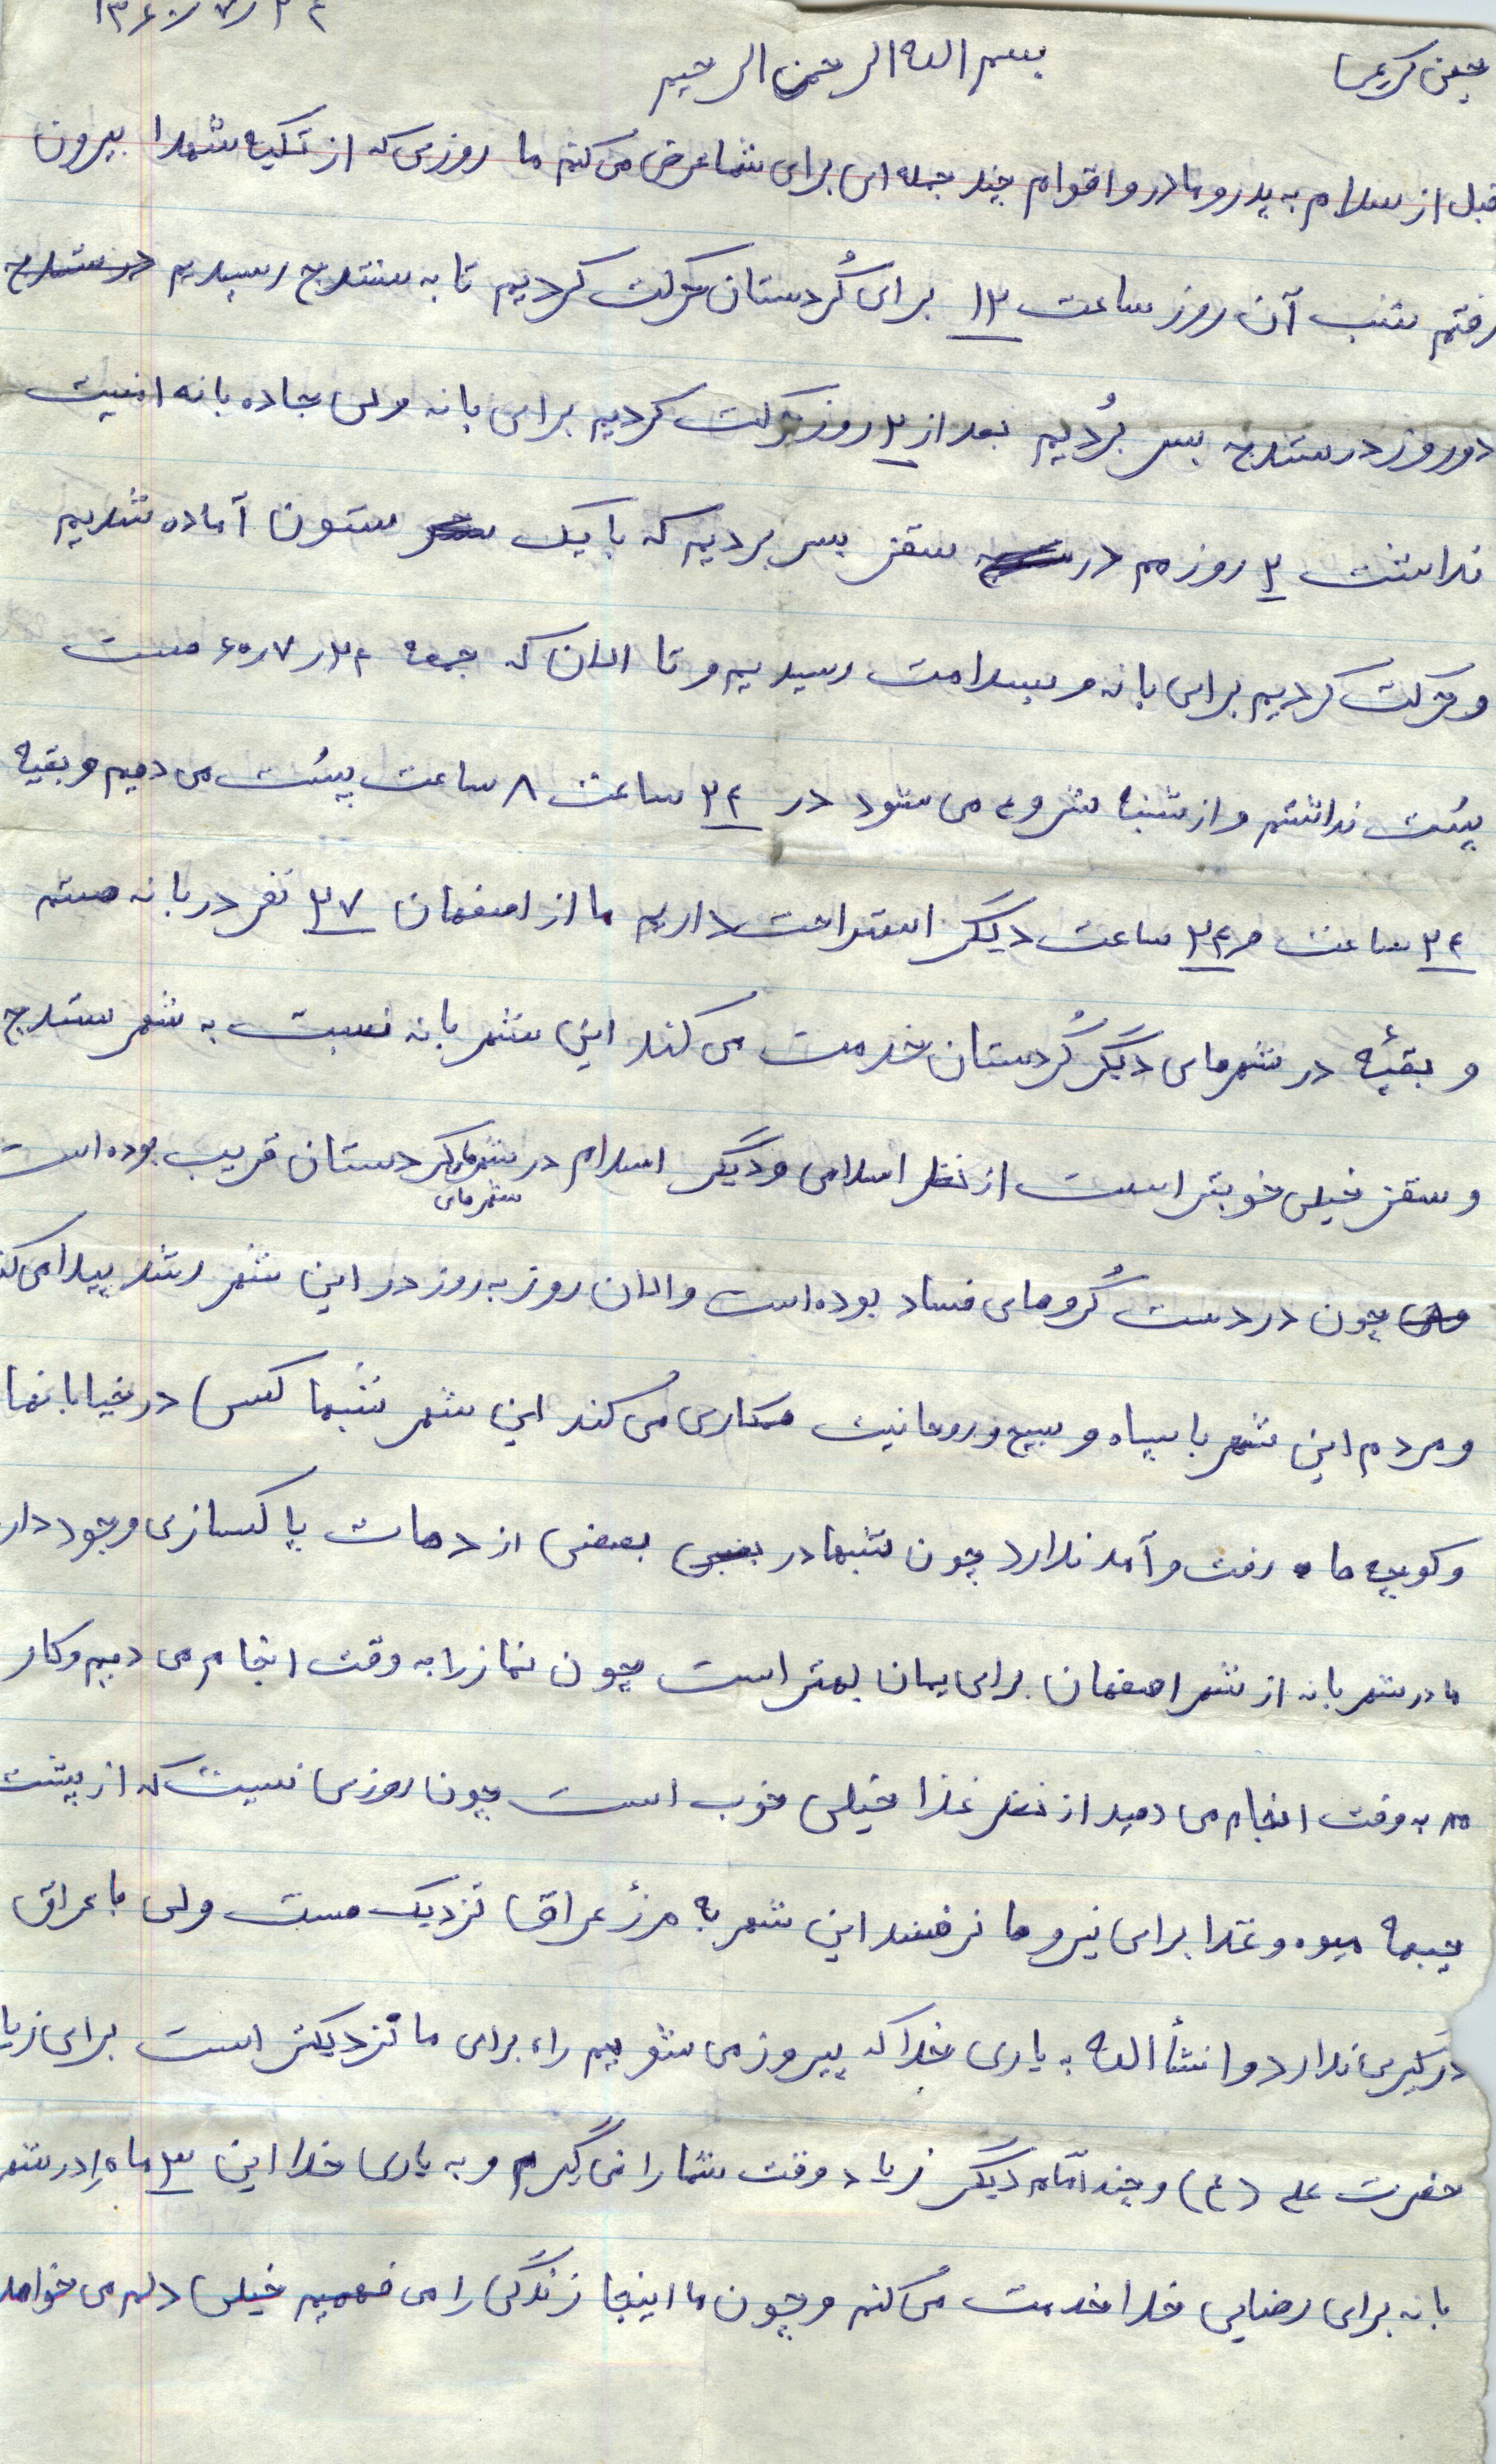 ۱۳۶۰/۷/۲۴
بسم الله الرحمن الرحیم
قبل از سلام به پدر و مادر و اقوام چند جمله ای برای شما عرض می کنم ما روزی که از تکیه شهدا بیرون
رفتم شب آن روز ساعت ۱۲ برای کُردستان حرکت کردیم تا به سنندج رسیدیم در سنندج
دو روز در سنندج بسر بُردیم بعد از ۲ روز حرکت کردیم برای بانه ولی جاده بانه امنیت
نداشت ۲ روز هم در سقز بسر بردیم که با یک ستون آماده شدیم
و حرکت کردیم برای بانه و بسلامت رسیدیم و تا الان که جمعه ۲۴ر۷ر۶۰ هست
پُست نداشتم و از شنبه شروع می شود در ۲۴ ساعت ۸ ساعت پُست می دهیم و بقیه
۲۴ ساعت و ۲۴ ساعت دیگر استراحت داریم ما از اصفهان ۲۷ نفر در بانه هستم
و بقیهٔ در شهرهای دیگر کُردستان خدمت می کند این شهر بانه نسبت به شهر سنندج
و سقز خیلی خوبتر است از نظر اسلامی و دیگر اسلام در شهرهای کردستان قریب بوده است
شهرهای
چون در دست گُروهای فساد بوده است و الان روز به روز در این شهر رشد پیدا می کند
و مردم این شهر با سپاه و سیج و روحانیت همکاری می کند این شهر شبها کسی در خیابانها
و کوچه ها رفت و آمد ندارد چون شبها در بعضی از دهات پاکسازی وجود دار
ما در شهر بانه از شهر اصفهان برای یمان بهتر است چون نماز را به وقت انجام می دهیم و کار
به وقت انجام می دهید از نظر غذا خیلی خوب است چون روزی نیست که از پشت
جبهه میوه و غذا برای نیروها نرفسند این شهر به مرز عراق نزدیک هست ولی با عراق
درگیری ندارد و انشأالله به یاری خدا که پیروز می شویم راه برای ما نزدیکتر است برای زیا
حضرت علی (ع) و چند امّام دیگر زیاد وقت شما را نمی گیرم و به یاری خدا این ۳ ماه را در شهر
بانه برای رضایی خدا خدمت می کنم و چون ما اینجا زندگی را می فهمیم خیلی دلم می خواهد